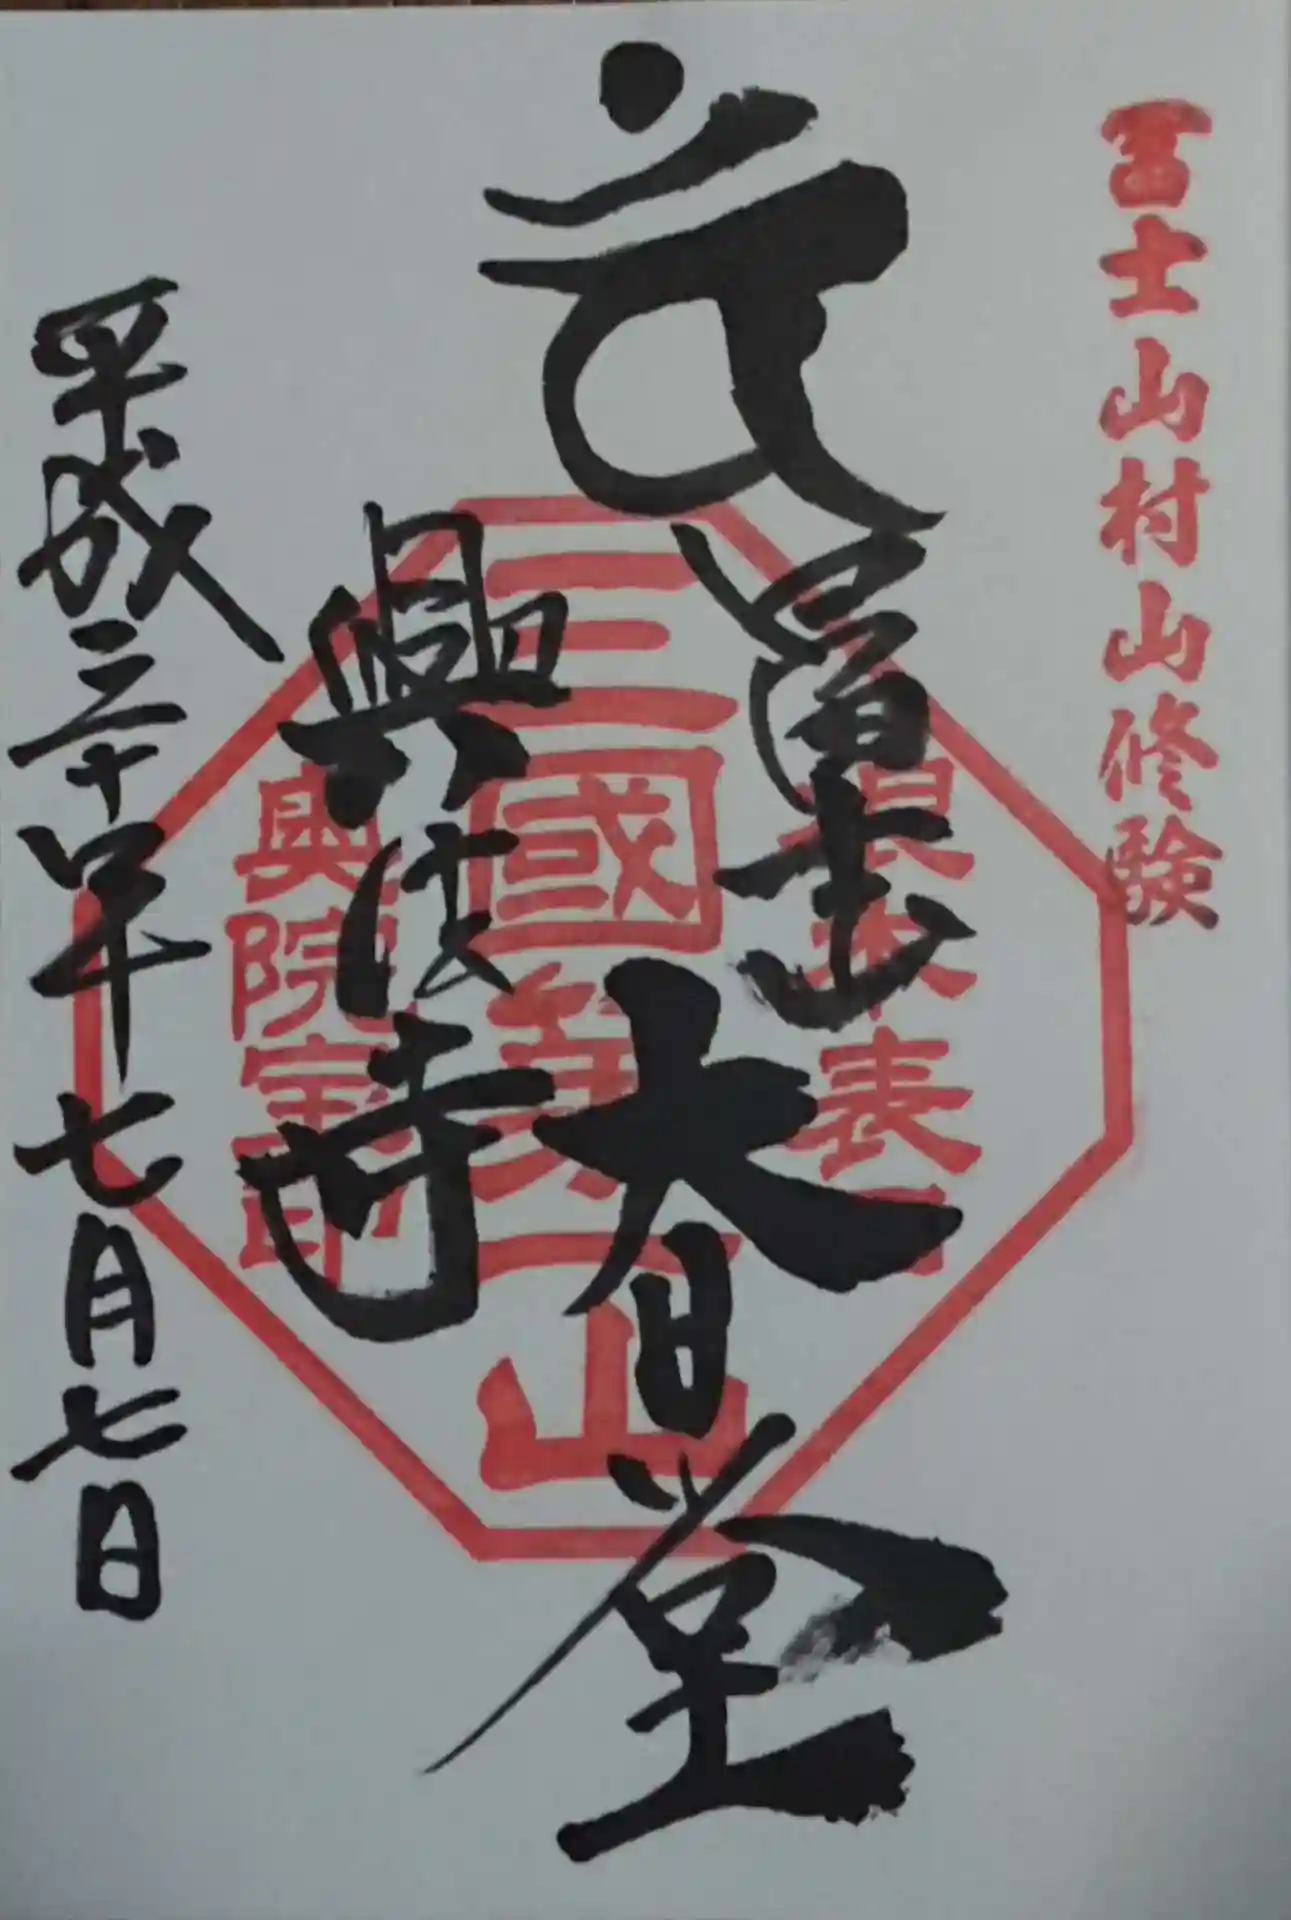 冨士山村山修験
バン 冨士山
大日堂
根本表口
三國第一山
奥院宝印
興法寺
平成三十年七月七日